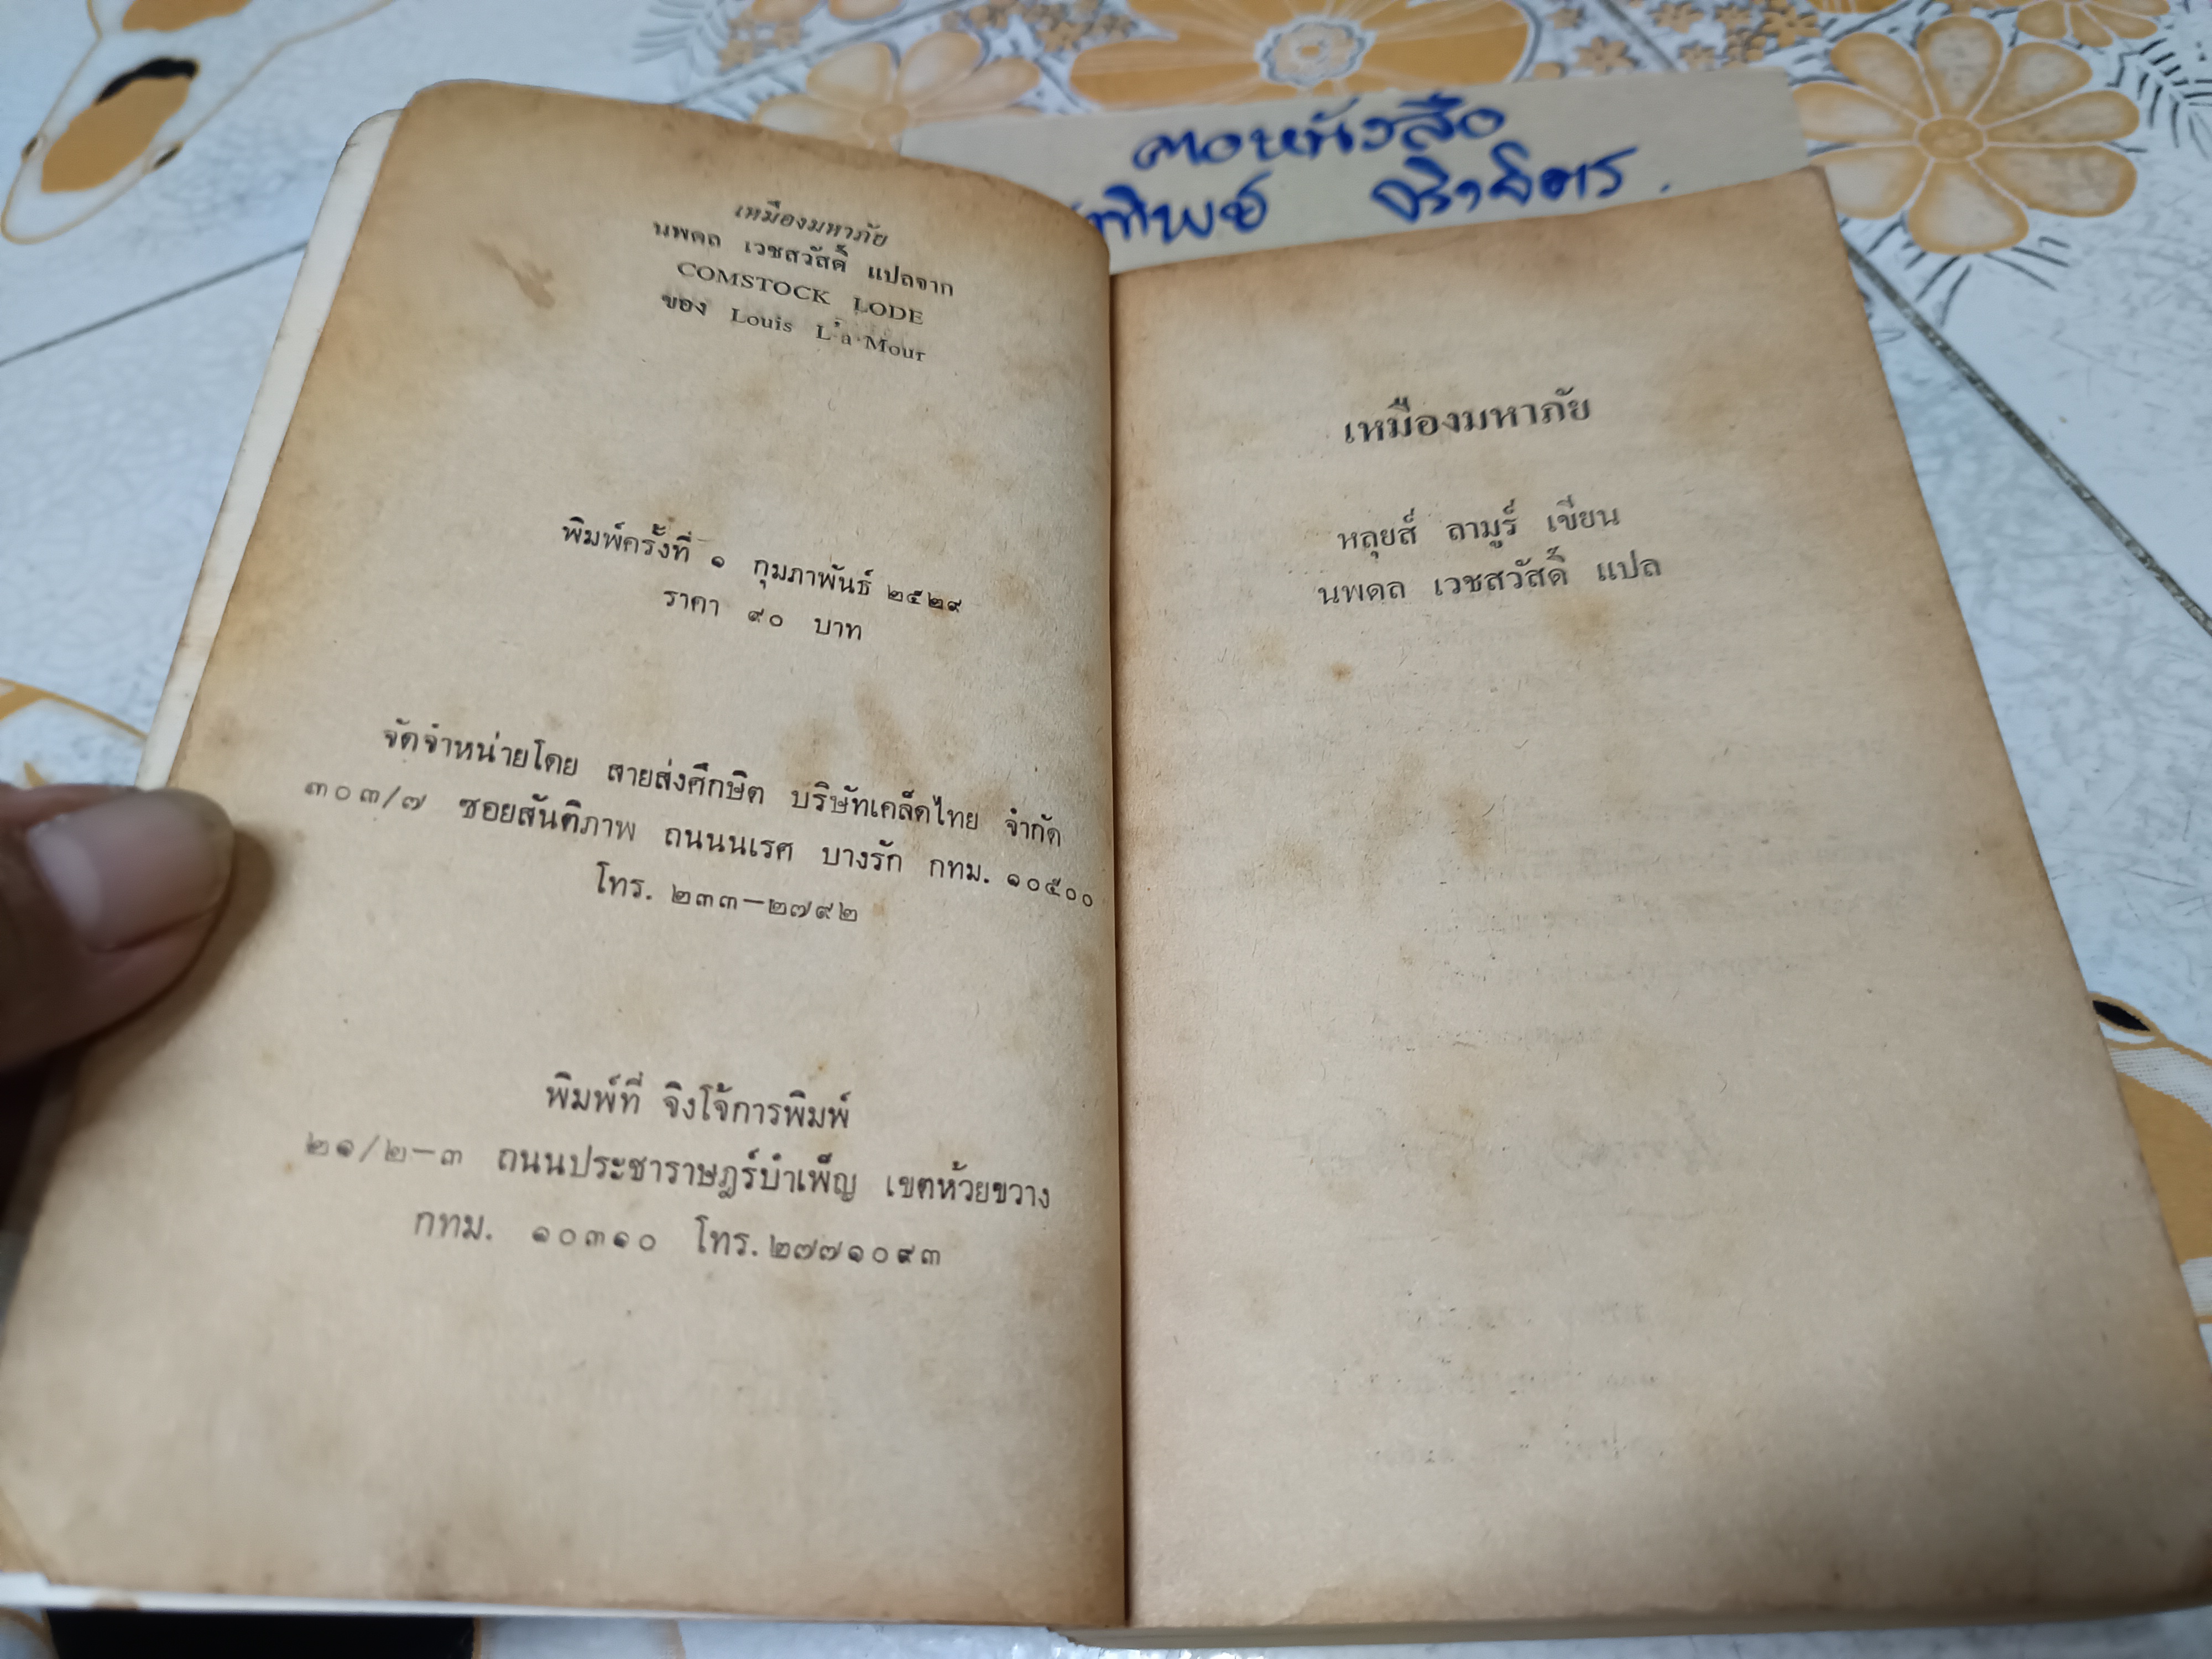 คอหนังสือ
เหมืองมหาภัย
นพดล เวชสวัสดิ์ แปลจาก
COMSTOCK LODE
ของ Louis L'a'Mour
พิมพ์ครั้งที่ ๑ กุมภาพันธ์ ๒๕๒๙
ราคา ๙๐ บาท
จัดจำหน่ายโดย สายส่งศึกษิต บริษัทเคล็ดไทย จำกัด
๓๐๓/๗ ซอยสันติภาพ ถนนนเรศ บางรัก กทม. ๑๐๕๐๐
โทร. ๒๓๓-๒๗๙๒
พิมพ์ที่ จิงโจ้การพิมพ์
๒๑/๒-๓ ถนนประชาราษฎร์บำเพ็ญ เขตห้วยขวาง
กทม. ๑๐๓๑๐ โทร.๒๗๗๑๐๙๓
เหมืองมหาภัย
หลุยส์ ลามูร์ เขียน
นพดล เวชสวัสดิ์ แปล